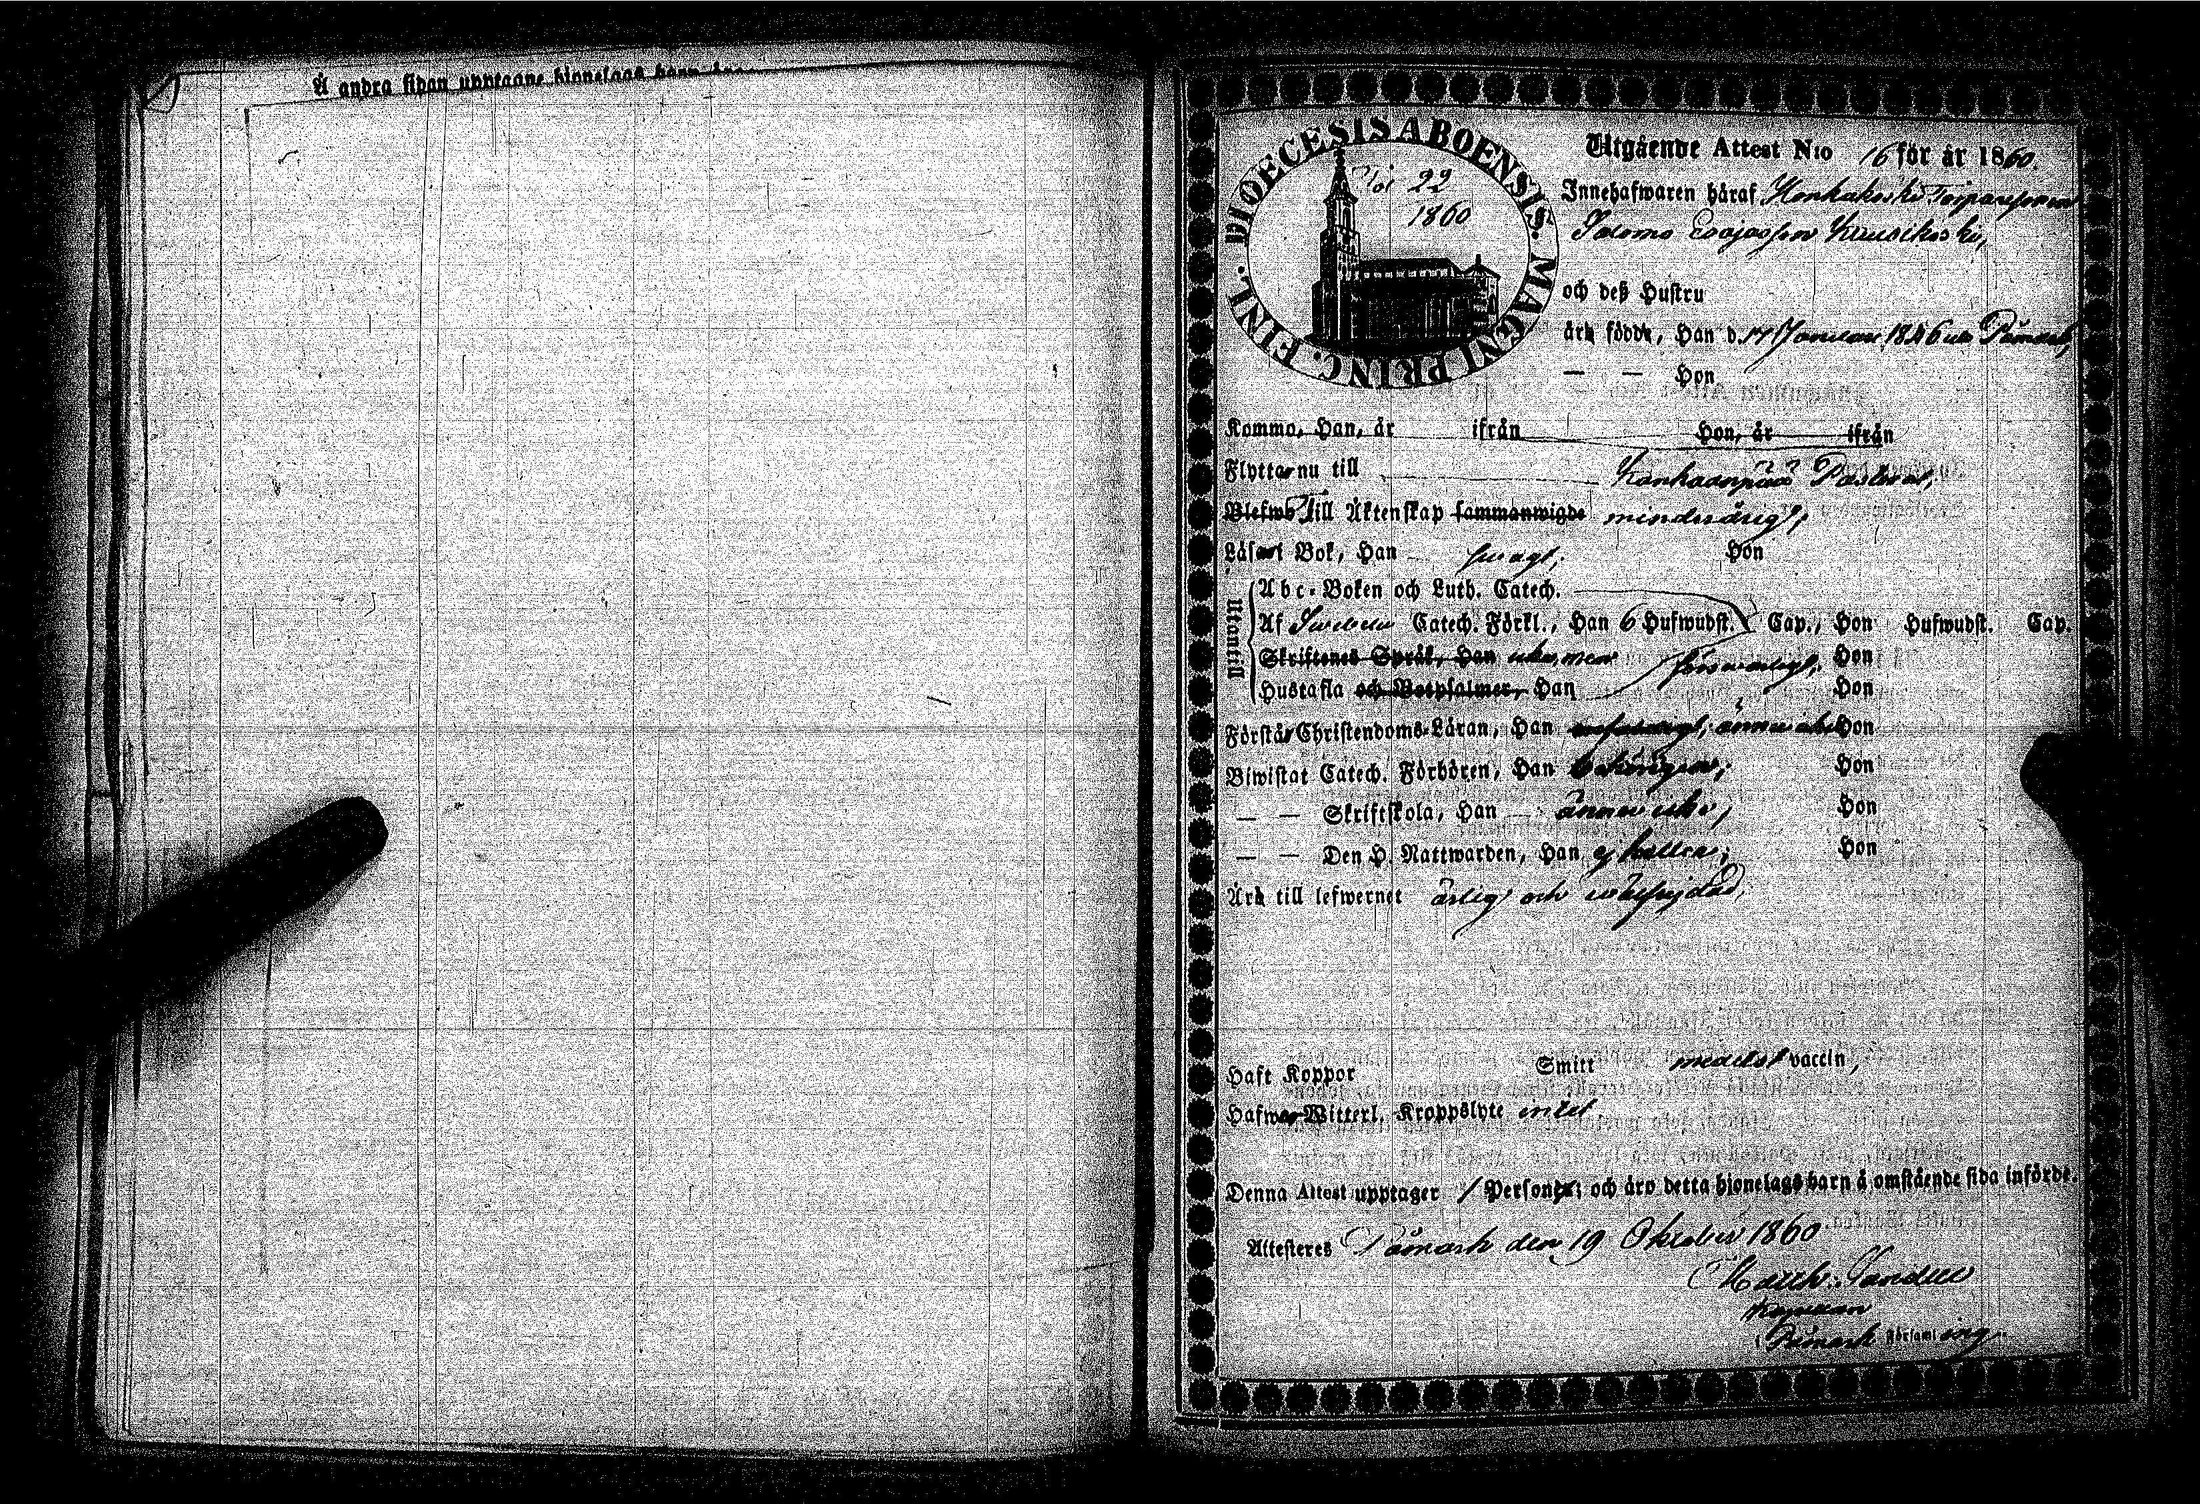 Å andra sidan upptagne hjonelags barn
DIOECESIS ABOENSIS. MAGNI PRINC. FINL.
22
1860
Utgående Attest No 16 för år 1860.
Innehafwaren häraf Honkakoski
Salomo Esajasson
och deß Hustru
ärh född, Han d. 17 Januari 1846 uti Påmark,
— — Hon
Komma, Han, år ifrån Hon, år ifrån
Flyttar nu till Kankaanpää Pastorat,
Blefwo Till Äktenskap sammanwigde minderårig,
Läser i Bok, Han swagt, Hon
Utantill
Abc-Boken och Luth. Catech.
Af Svebelii Catech. Förkl., Han 6 Hufwudst. Cap., Hon Hufwudst. Cap.
Skriftenes Språk, Han försvarligt, Hon
Hustafla och Botpsalmer, Han Hon
Förstår Christendoms-Läran, Han Hon
Biwistat Catech. Förhören, Han Hon
— — Skriftskola, Han ännu icke, Hon
— — Den H. Nattwarden, Han ej heller, Hon
Ärh till lefwernet ärlig och wälfrejdad,
Haft Koppor Smitt medelst vaccin,
Hafwer Witterl. Kroppslyte intet
Denna Attest upptager 1 Person; och äro detta hjonelags barn å omstående sida införde.
Attesteres Påmark den 19 Oktober 1860.
Matth.
Kapellan
Påmark Församling.